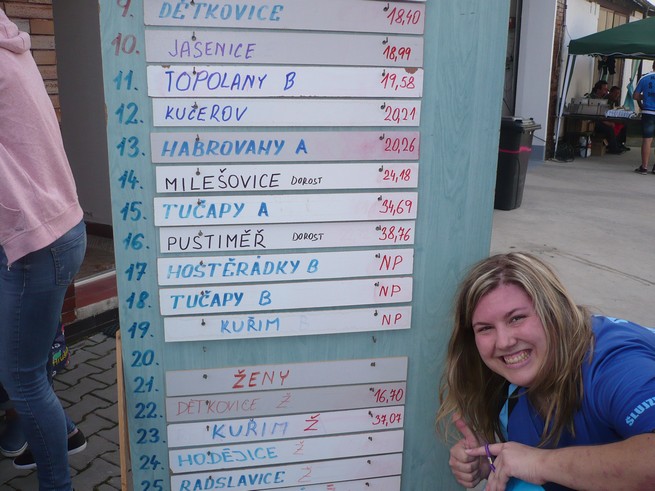 9. DĚTKOVICE 18,40
10. JAŠENICE 18,99
11. TOPOLANY B 19,58
12. KUČEROV 20,21
13. HABROVAHY A 20,26
14. MILEŠOVICE DOROST 24,18
15. TUČAPY A 34,69
16. PUSTIMĚŘ DOROST 38,76
17 HOSTĚRÁDKY B NP
18. TUČAPY B NP
19. KUŘIM B NP
20.
21. ŽENY
22. DĚTKOVICE Ž 16,70
23. KUŘIM Ž 37,07
24. HODĚJICE Ž
25 RADSLAVICE Ž